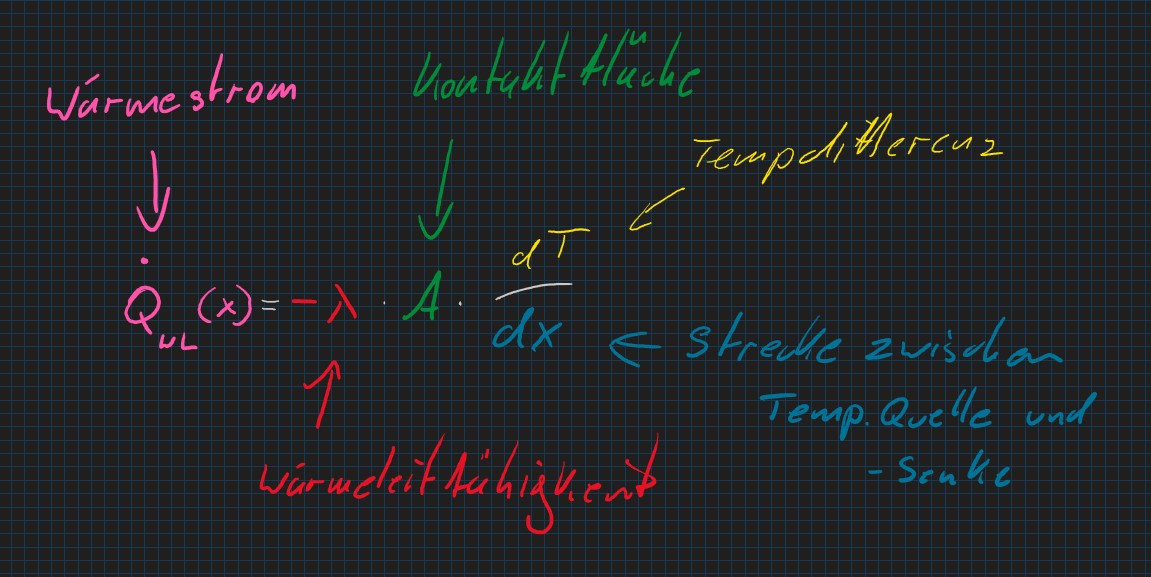 Wärmestrom
Kontaktfläche
Tempdifferenz
Q̇_WL (x) = -λ · A · dT/dx
← Strecke zwischen
Temp. Quelle und
- Senke
Wärmeleitfähigkeit